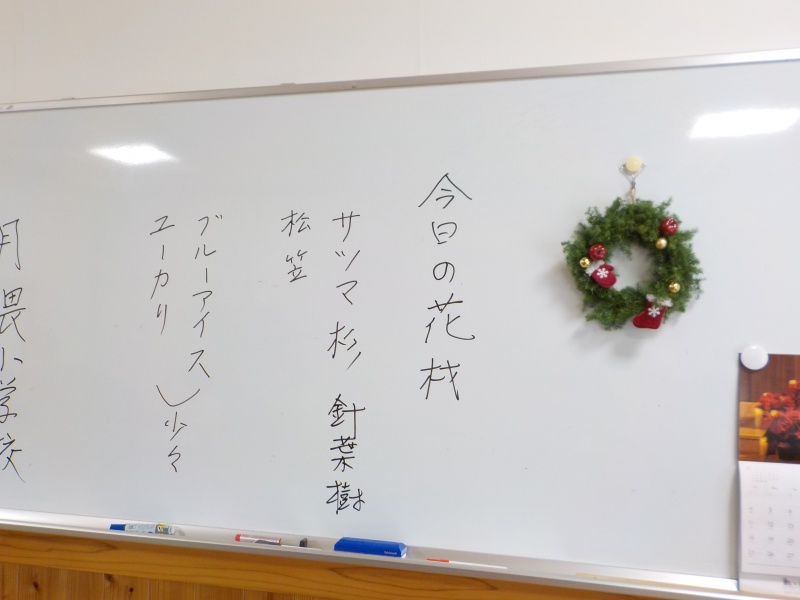 今日の花材
サツマ杉 針葉樹
松笠
ブルーアイス
ユーカリ
少々
月隈小学校